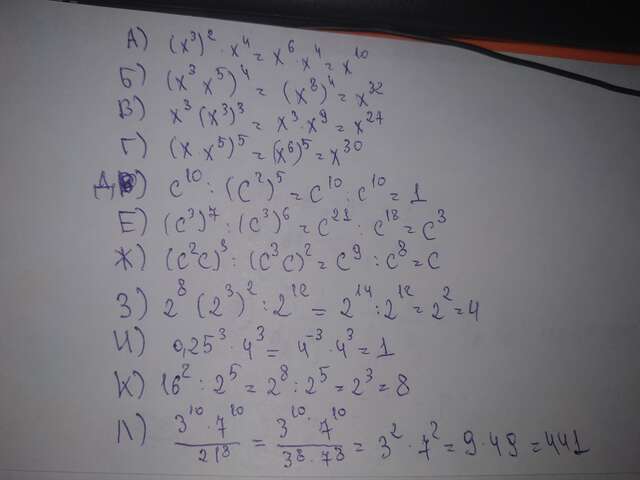 А) (x³)² · x⁴ = x⁶ · x⁴ = x¹⁰
Б) (x³ x⁵)⁴ = (x⁸)⁴ = x³²
В) x³ (x³)³ = x³ · x⁹ = x²⁷
Г) (x · x⁵)⁵ = (x⁶)⁵ = x³⁰
Д) c¹⁰ : (c²)⁵ = c¹⁰ : c¹⁰ = 1
Е) (c³)⁷ : (c³)⁶ = c²¹ : c¹⁸ = c³
Ж) (c²c)³ : (c³c)² = c⁹ : c⁸ = c
З) 2⁸ (2³)² : 2¹² = 2¹⁴ : 2¹² = 2² = 4
И) 0,25³ · 4³ = 4⁻³ · 4³ = 1
К) 16² : 2⁵ = 2⁸ : 2⁵ = 2³ = 8
Л) 3¹⁰ · 7¹⁰ / 21⁸ = 3¹⁰ · 7¹⁰ / 3⁸ · 7⁸ = 3² · 7² = 9 · 49 = 441